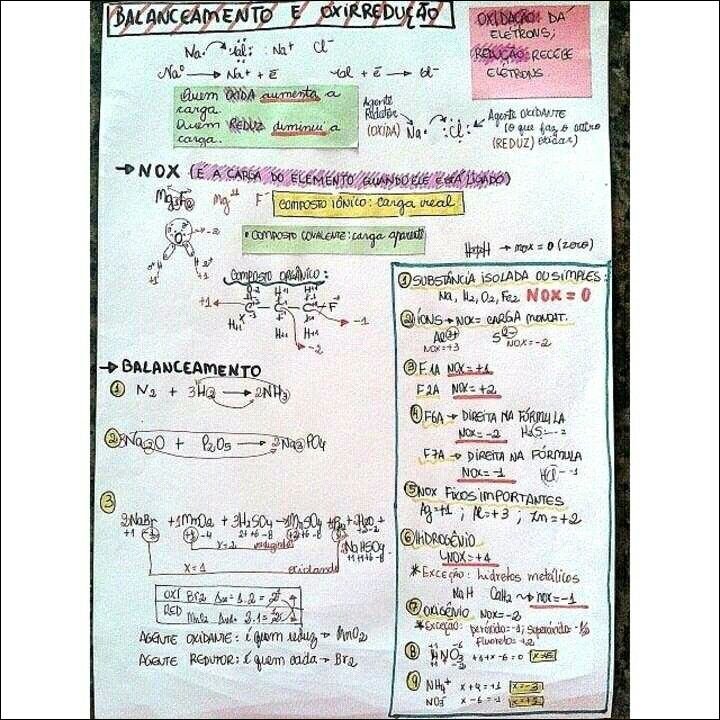 BALANCEAMENTO E OXIRREDUÇÃO
OXIDAÇÃO DÁ
ELÉTRONS;
REDUÇÃO RECEBE
ELÉTRONS.
Quem OXIDA aumenta a
carga.
Quem REDUZ diminui a
carga.
Agente
Redutor
(OXIDA)
Agente OXIDANTE
(o que faz o outro
(REDUZ) oxidar)
→ NOX (É A CARGA DO ELEMENTO QUANDO ELE ESTÁ LIGADO)
COMPOSTO IÔNICO: carga real.
• COMPOSTO COVALENTE: carga aparente
→ nox = 0 (zero)
COMPOSTO ORGÂNICO:
→ BALANCEAMENTO
① N₂ + 3H₂ → 2NH₃
② 3Na₂O + P₂O₅ → 2Na₃PO₄
③
2NaBr + 1MnO₂ + 3H₂SO₄ → 1MnSO₄ + 1Br₂ + 2H₂O +
2NaHSO₄
x=2
x=1
oxidando
OXI Br₂
RED MnO₂
AGENTE OXIDANTE: é quem reduz → MnO₂
AGENTE REDUTOR: é quem oxida → Br₂
① SUBSTÂNCIA ISOLADA OU SIMPLES:
Na, H₂, O₂, Fe₂ NOX = 0
② ÍONS → NOX = CARGA MONOAT.
Al³⁺ S²⁻
NOX=+3 NOX=-2
③ F.1A NOX=+1
F2A NOX=+2
④ F6A → DIREITA NA FÓRMULA
NOX=-2 H₂S
F7A → DIREITA NA FÓRMULA
NOX=-1 HCl → -1
⑤ NOX FIXOS IMPORTANTES
Ag=+1 ; Al=+3 ; Zn=+2
⑥ HIDROGÊNIO
NOX=+1
*EXCEÇÃO: hidretos metálicos
NaH CaH₂ → nox=-1
⑦ OXIGÊNIO NOX=-2
*Exceção: peróxido=-1; superóxido=-½
fluoreto=+2
⑧ HNO₃ +1+x-6=0 x=+5
⑨ NH₄⁺ x+4=+1 x=-3
NO₃⁻ x-6=-1 x=+5